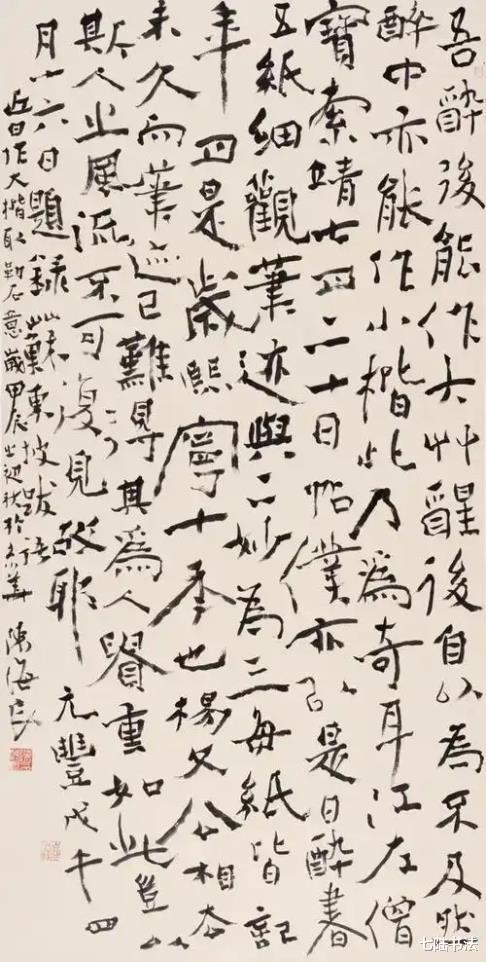 吾醉後能作大艸醒後自以為不及然
醉中亦能作小楷此乃為奇耳江左僧
寶索靖七月二十日帖僕亦以是日醉書
五紙細觀筆迹與二妙為三每紙皆記
年月是歲熙寧十季也楊文公相去
未久而筆迹已難得其為人貴重如此豈以
斯人之風流不可復見故耶元豐戊午四
月十六日題錄蘇東坡跋語
近日作大楷取勒石意歲甲辰之初秋於京華陳海良
七陆书法